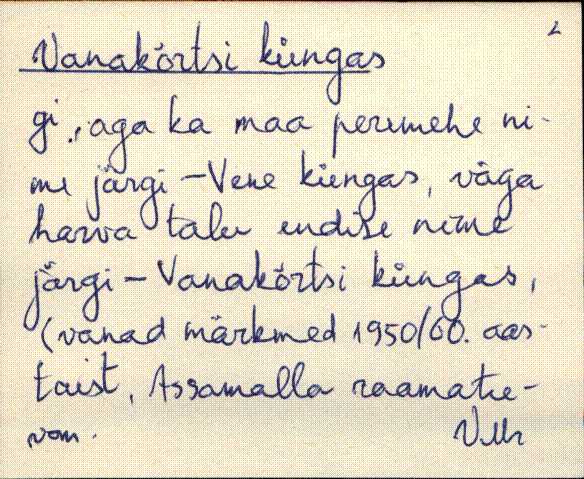 2
Vanakõrtsi küngas
gi., aga ka maa peremehe ni-
me järgi – Vene küngas, väga
harva talu endise nime
järgi – Vanakõrtsi küngas,
(vanad märkmed 1950/60. aas-
taist, Assamalla raamatu-